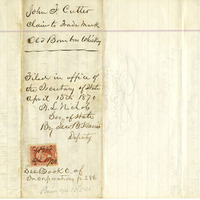 John F Cutter
Claim to Trade Mark
Old Bourbon Whisky
Filed in office of
the Secretary of State
April 15th 1870
H. L. Nichols
Sec. of State
By
Deputy
See Book C of
Incorporations p 286